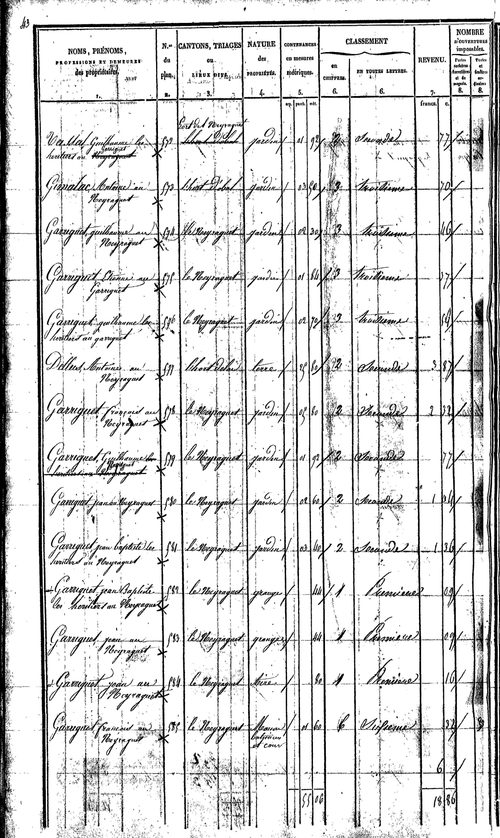 63
NOMS, PRÉNOMS, PROFESSIONS ET DEMEURES des propriétaires. 1. | N.os du plan. 2. | CANTONS, TRIAGES ou LIEUX DITS. 3. | NATURE des PROPRIÉTÉS. 4. | CONTENANCES en mesures métriques. 5. | CLASSEMENT en CHIFFRES. 6. | EN TOUTES LETTRES. 6. | REVENU. 7. | NOMBRE D'OUVERTURES imposables. 8. 8.
arp. perch. mèt. francs. c.
Guillaume les héritiers au 572 jardin 2 Seconde 77
Antoine au Neyraguet 573 jardin 3 troisieme 70
Garriguet guillaume au Neyraguet 574 le Neyraguet jardin 02 30 3 troisieme 46
Garriguet au Garriguet 575 le Neyraguet jardin 01 84 3 troisieme 37
Garriguet guillaume les héritiers au garriguet 576 le Neyraguet jardin 02 70 3 troisieme 54
Antoine au Neyraguet 577 terre 2 Seconde 3 87
Garriguet françois au Neyraguet 578 le Neyraguet jardin 05 80 2 Seconde 2 32
Garriguet Guillaume les héritiers au Neyraguet 579 le Neyraguet jardin 01 92 2 Seconde 77
Garriguet jean au Neyraguet 580 le Neyraguet jardin 02 60 2 Seconde 1 04
Garriguet jean baptiste les héritiers au Neyraguet 581 le Neyraguet jardin 03 40 2 Seconde 1 36
Garriguet, jean Baptiste les héritiers au Neyraguet 582 le Neyraguet grange 44 1 Premiere 09
Garriguet, jean au Neyraguet 583 le Neyraguet grange 44 1 Premiere 09
Garriguet, jean au Neyraguet 584 le Neyraguet 80 1 Premiere 16
Garriguet françois au Neyraguet 585 le Neyraguet Maison et cour 01 60 6 Sixieme 32
6
55 06 18 86